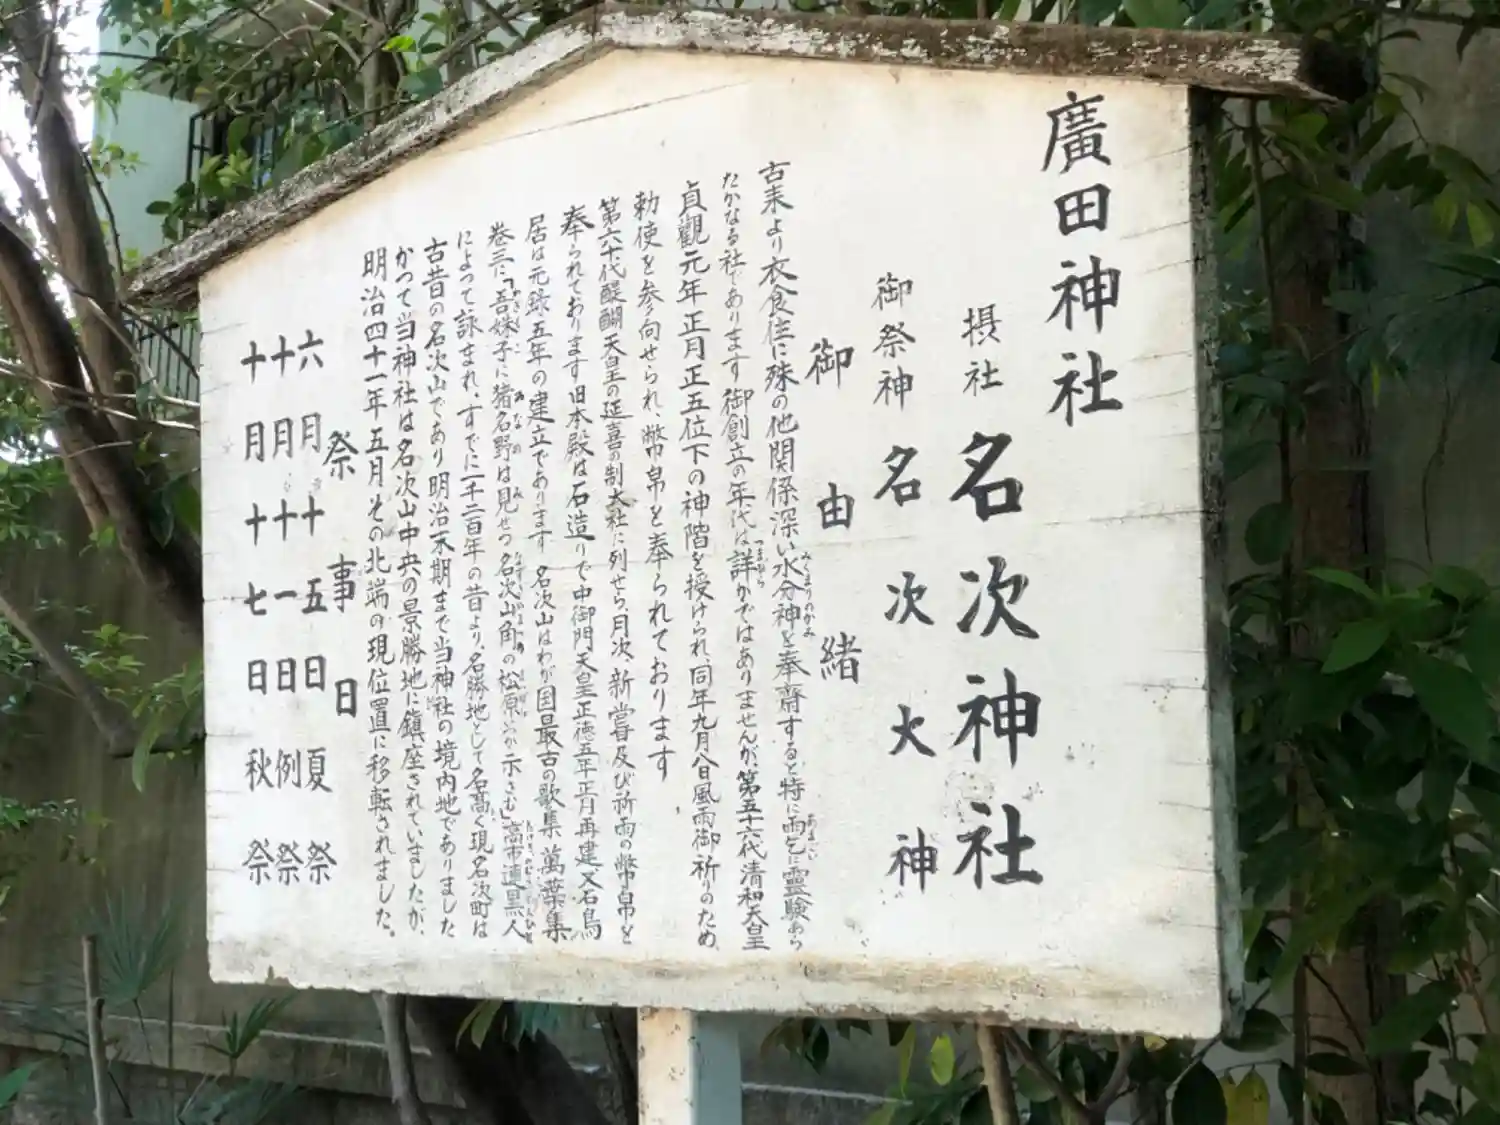 廣田神社
摂社 名次神社
御祭神 名次大神
御由緒
古来より衣食住に殊の他関係深い水分神を奉齋すると特に雨乞に霊験あら
みくまりのかみ
あまごい
たかなる社であります 御創立の年代は詳かではありませんが、第五十六代清和天皇
つまびら
貞觀元年正月正五位下の神階を授けられ、同年九月八日風雨御祈りのため、
勅使を参向せられ、幣帛を奉られております
第六十代醍醐天皇の延喜の制大社に列せら、月次、新嘗及び祈雨の幣帛を
奉られております 旧本殿は石造りで中御門天皇正徳五年正月再建 又石鳥
居は元錄五年の建立であります 名次山はわが国最古の歌集 萬葉集
巻三に「吾妹子に猪名野は見せつ名次山角の松原いつか示さむ」高市連黒人
によつて詠まれ、すでに一千二百年の昔より、名勝地として名高く現名次町は
古昔の名次山であり明治末期まで当神社の境内地でありました
かつて当神社は名次山中央の景勝地に鎮座されていましたが、
明治四十一年五月その北端の現位置に移転されました。
祭事日
六月十五日 夏祭
十月十一日 例祭
十月十七日 秋祭